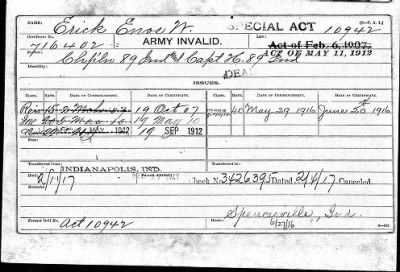 Erick Enos W. SPECIAL ACT 10942
Name: (3-7, A.I.)
Certificate No. ARMY INVALID. Act of Feb. 6, 1907.
716402 ACT OF MAY 11, 1912
Service:
Chpln 89 Ind & Capt H. 89 Ind
Disability: DEAD
ISSUES.
CLASS. RATE. DATE OF COMMENCEMENT. DATE OF CERTIFICATE. CLASS. RATE. DATE OF COMMENCEMENT. DATE OF CERTIFICATE.
19 Oct 07 40 May 29 1916 June 20 1916
19 May 10
1912 19 SEP 1912
Transferred from
INDIANAPOLIS, IND.
Died
2/11/17 Check No. 3426395 Dated 2/4/17 Canceled.
Transferred to Home:
Spencerville, Ind.
6/27/16
Former Roll No. Act 10942